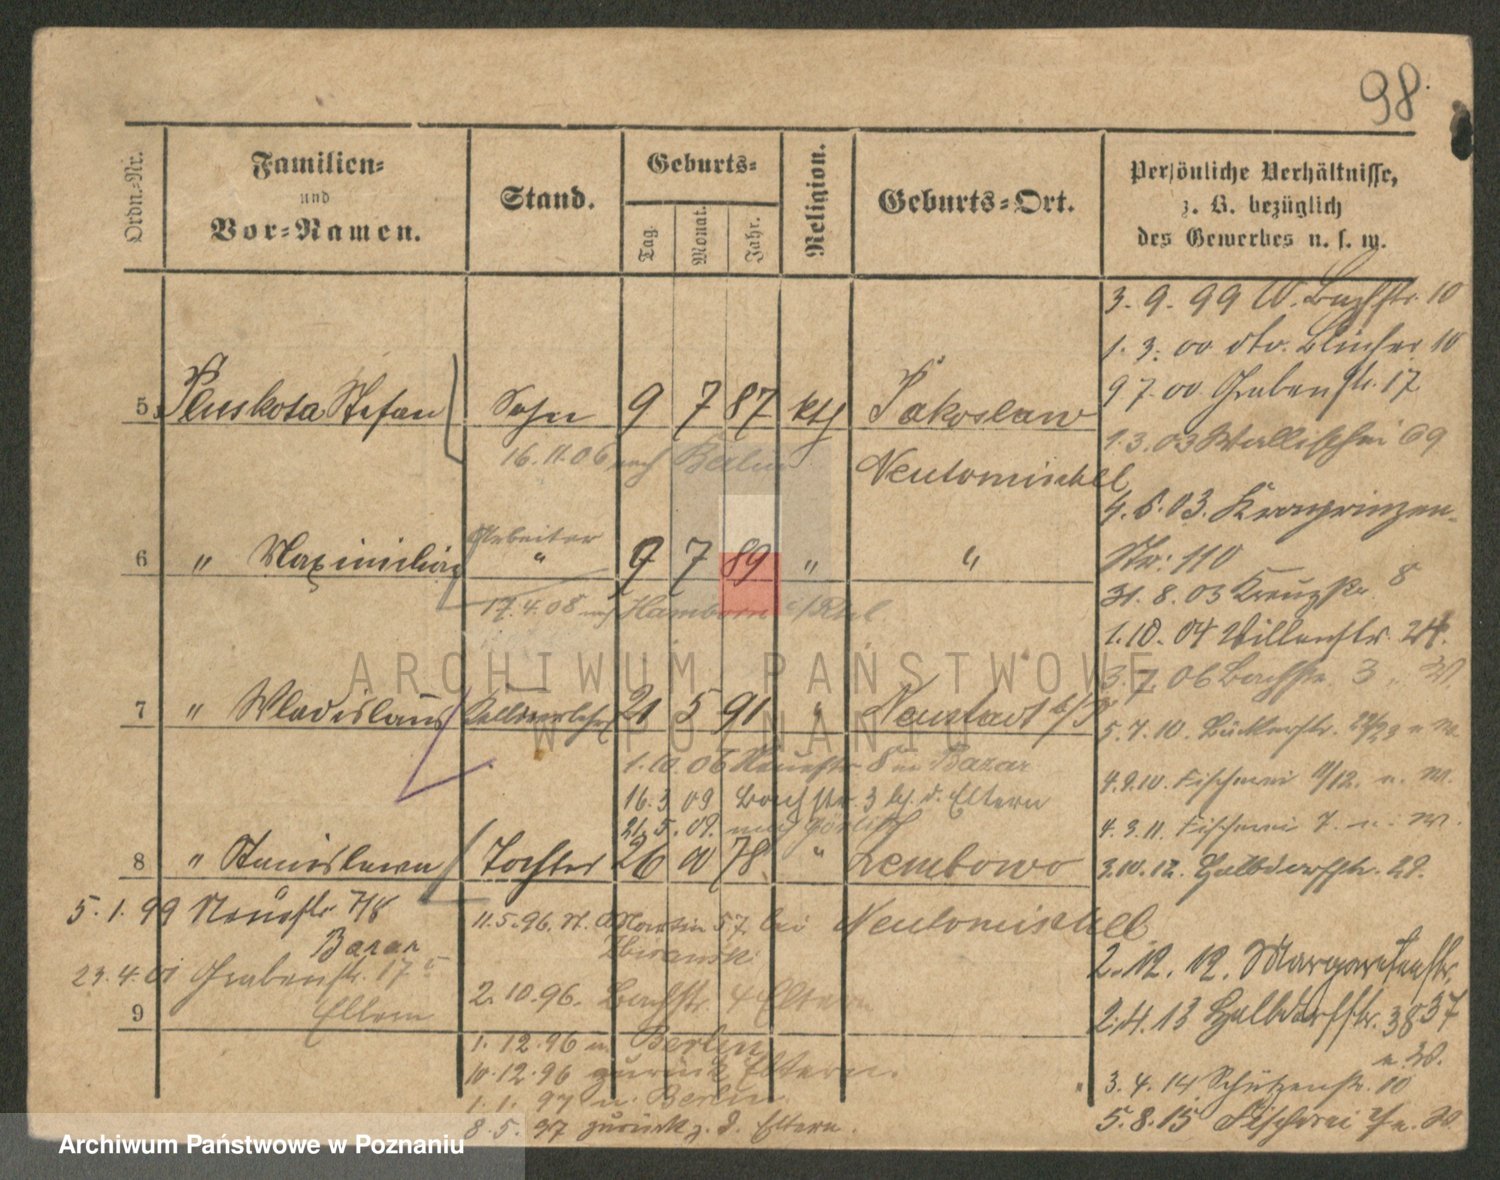 98
Ordn.-Nr.
Familien-
und
Vor-Namen.
Stand.
Geburts-
Tag.
Monat.
Jahr.
Religion.
Geburts-Ort.
Persönliche Verhältnisse,
z. B. bezüglich
des Gewerbes u. s. w.
3. 9. 99 W. Bachstr. 10
1. 3. 00 dto. Blücher 10
9 7. 00 Grabenstr. 17
5. Pluskota Stefan Sohn 9 7 87 kth Jakoslaw
1. 3. 03 Wallischei 69
16. 11. 06 nach Berlin
Neutomischel
4. 6. 03. Kronprinzen-
Str. 110
6 " Maximilian Arbeiter " 9 7 89 " "
31. 8. 03 Kreuzstr. 8
17. 4. 08 nach Hamborn
1. 10. 04 Villenstr. 24.
3. 7. 06 Bachstr. 3
ARCHIWUM PAŃSTWOWE
W POZNANIU
7 " Wladislaus Kellnerlehrl 21 5 91 " Neustadt b/P
5. 7. 10. Bäckerstr. 22/23 u. W.
1. 10. 06 Neuestr 8 Bazar
4. 9. 10. Fischerei 11/12. u. W.
16. 3 09 Bachstr. 3 b. d. Eltern
21. 5. 09. nach Görlitz
4. 3. 11. Fischerei 7. u. W.
8 " Stanislawa Tochter 26 10 78 " Lembowo
3. 10. 12. Halbdorfstr. 29.
5. 1. 99 Neuestr. 7/8
Bazar
11. 5. 96. St. Martin 57 bei
Neutomischel
23. 4. 01 Grabenstr. 17
Eltern
2. 10. 96. Bachstr. 4 Eltern
2. 12. 12. Margaretenstr.
9
2. 4. 13 Halbdorfstr. 38 37
u. W.
1. 12. 96 n Berlin
10. 12. 96 zurück Eltern.
1. 1. 97 n. Berlin
8. 5. 97 zurück z. d. Eltern.
3. 4. 14 Schützenstr. 10
5. 8. 15 Fischerei u. W.
Archiwum Państwowe w Poznaniu